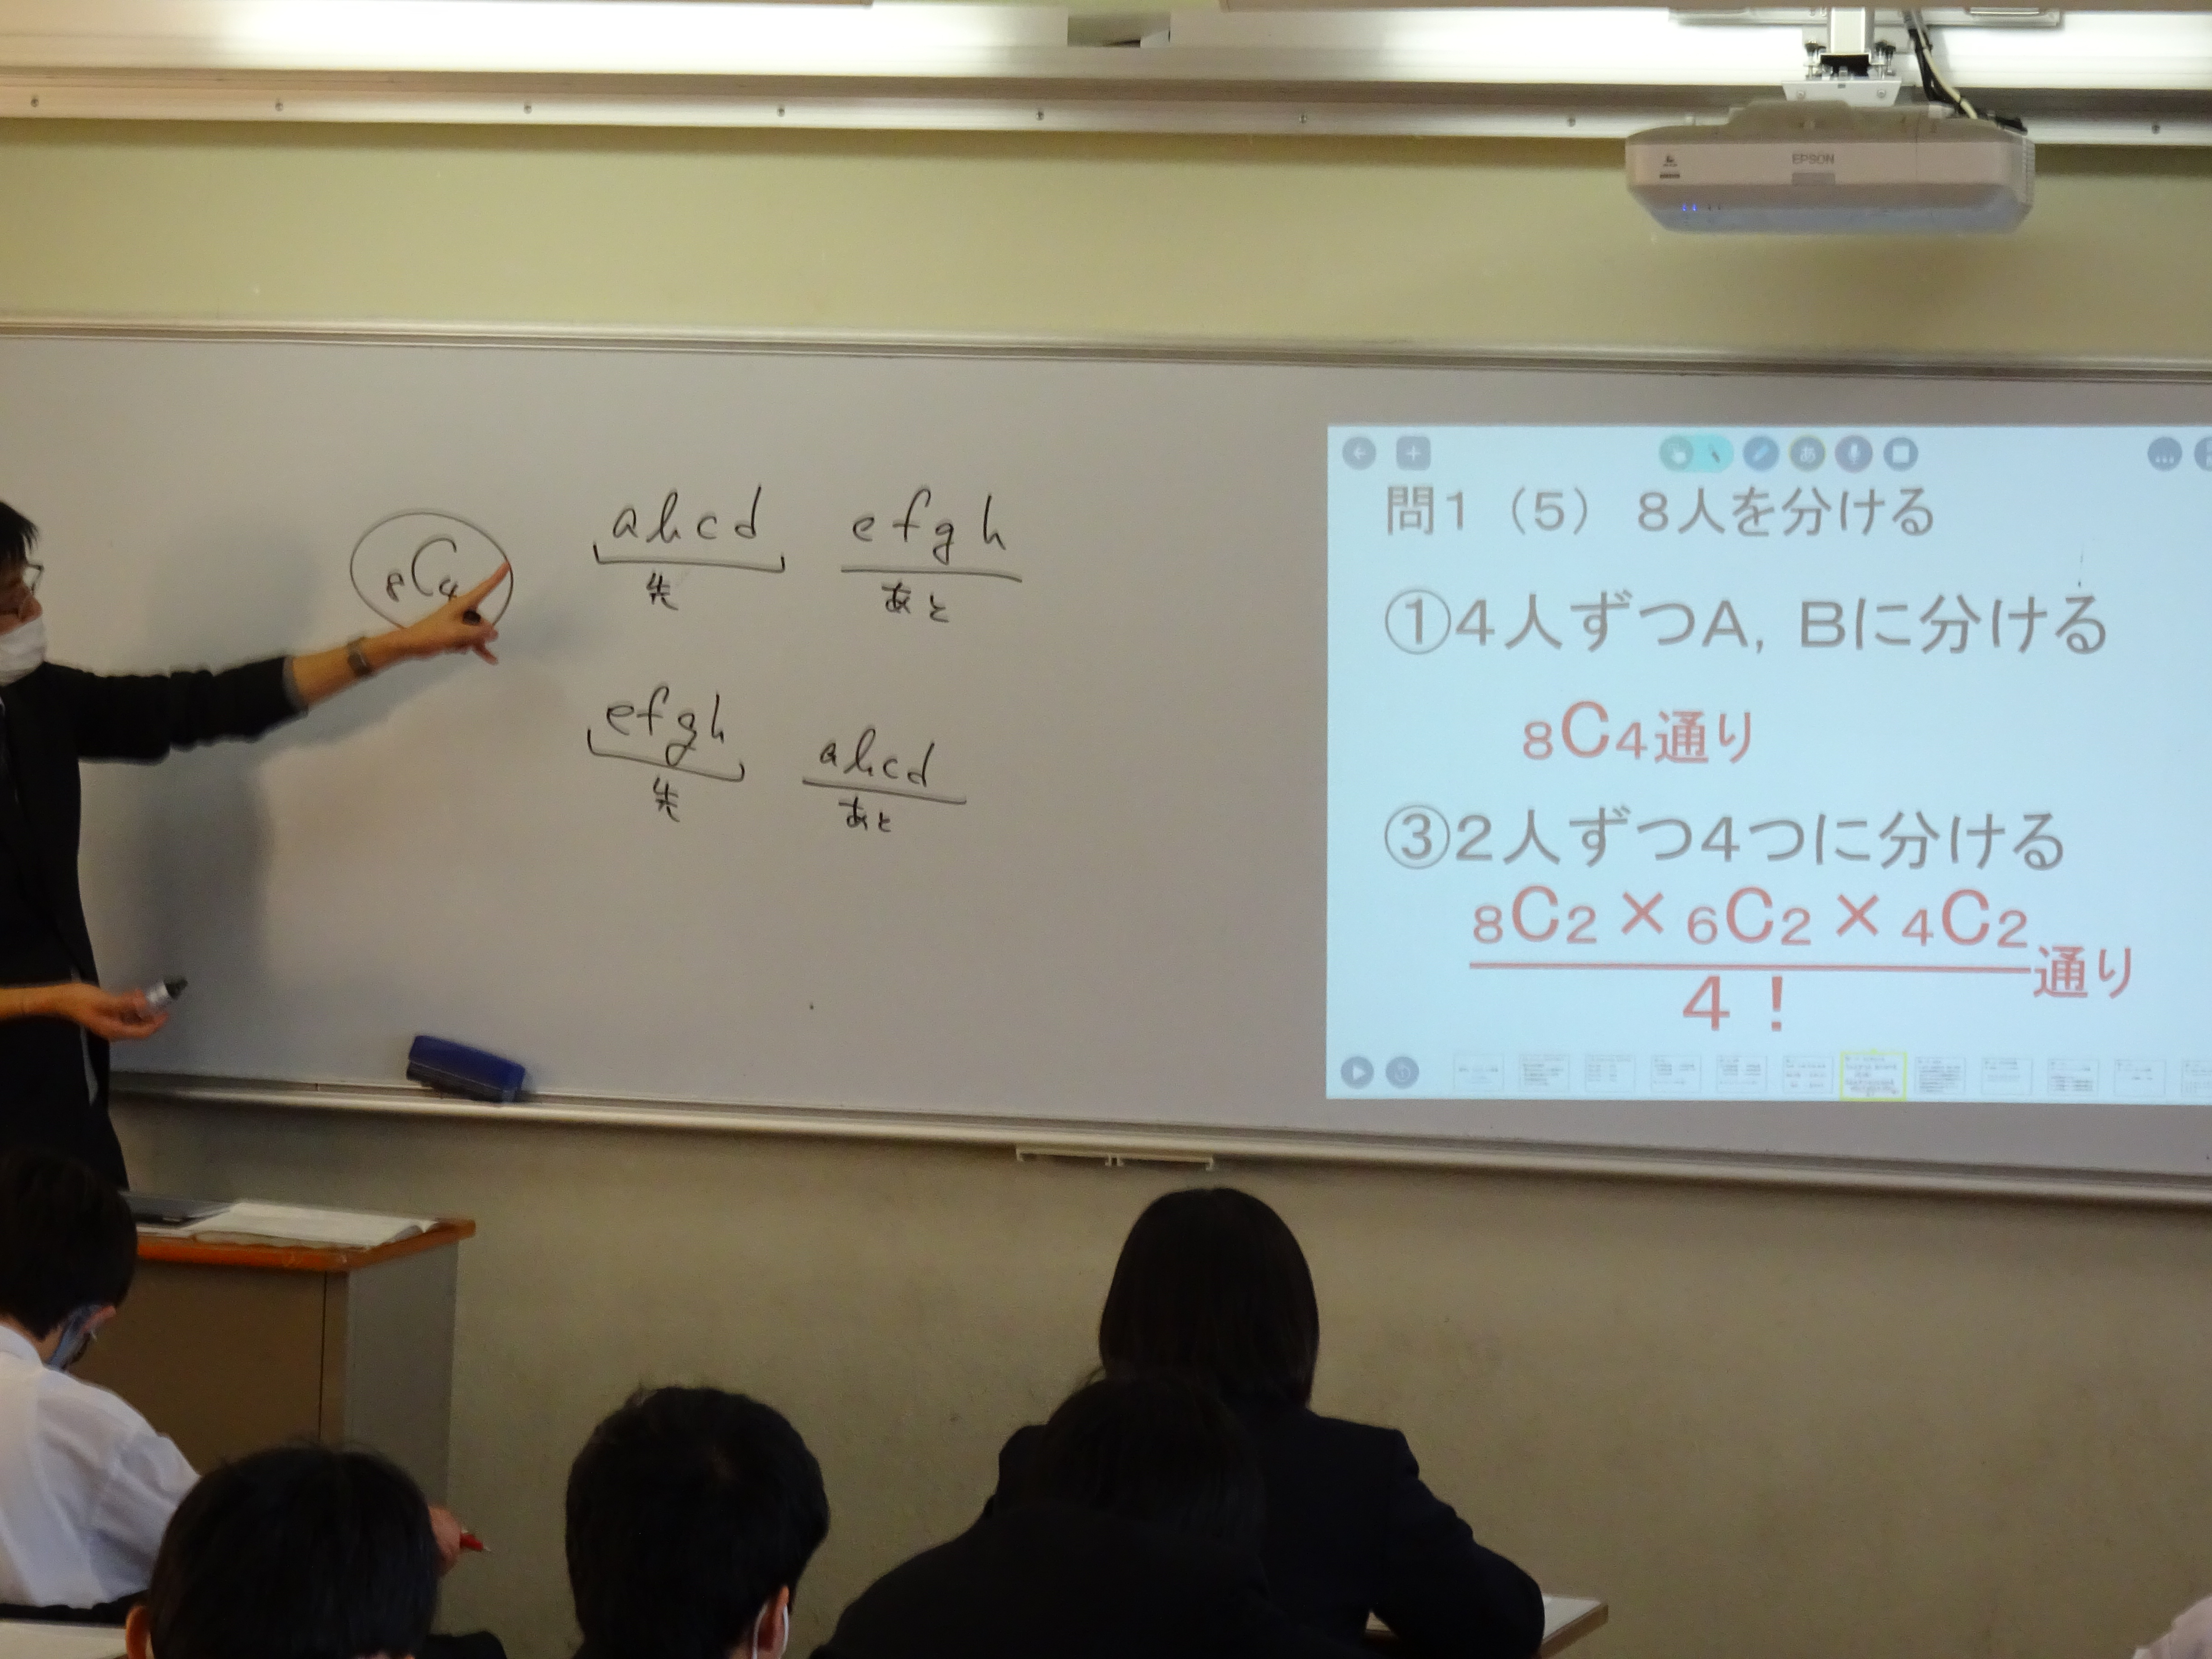 EPSON
₈C₄
abcd efgh
先 あと
efgh abcd
先 あと
あ
問1（5） 8人を分ける
①4人ずつA, Bに分ける
₈C₄通り
③2人ずつ4つに分ける
₈C₂×₆C₂×₄C₂
通り
4！